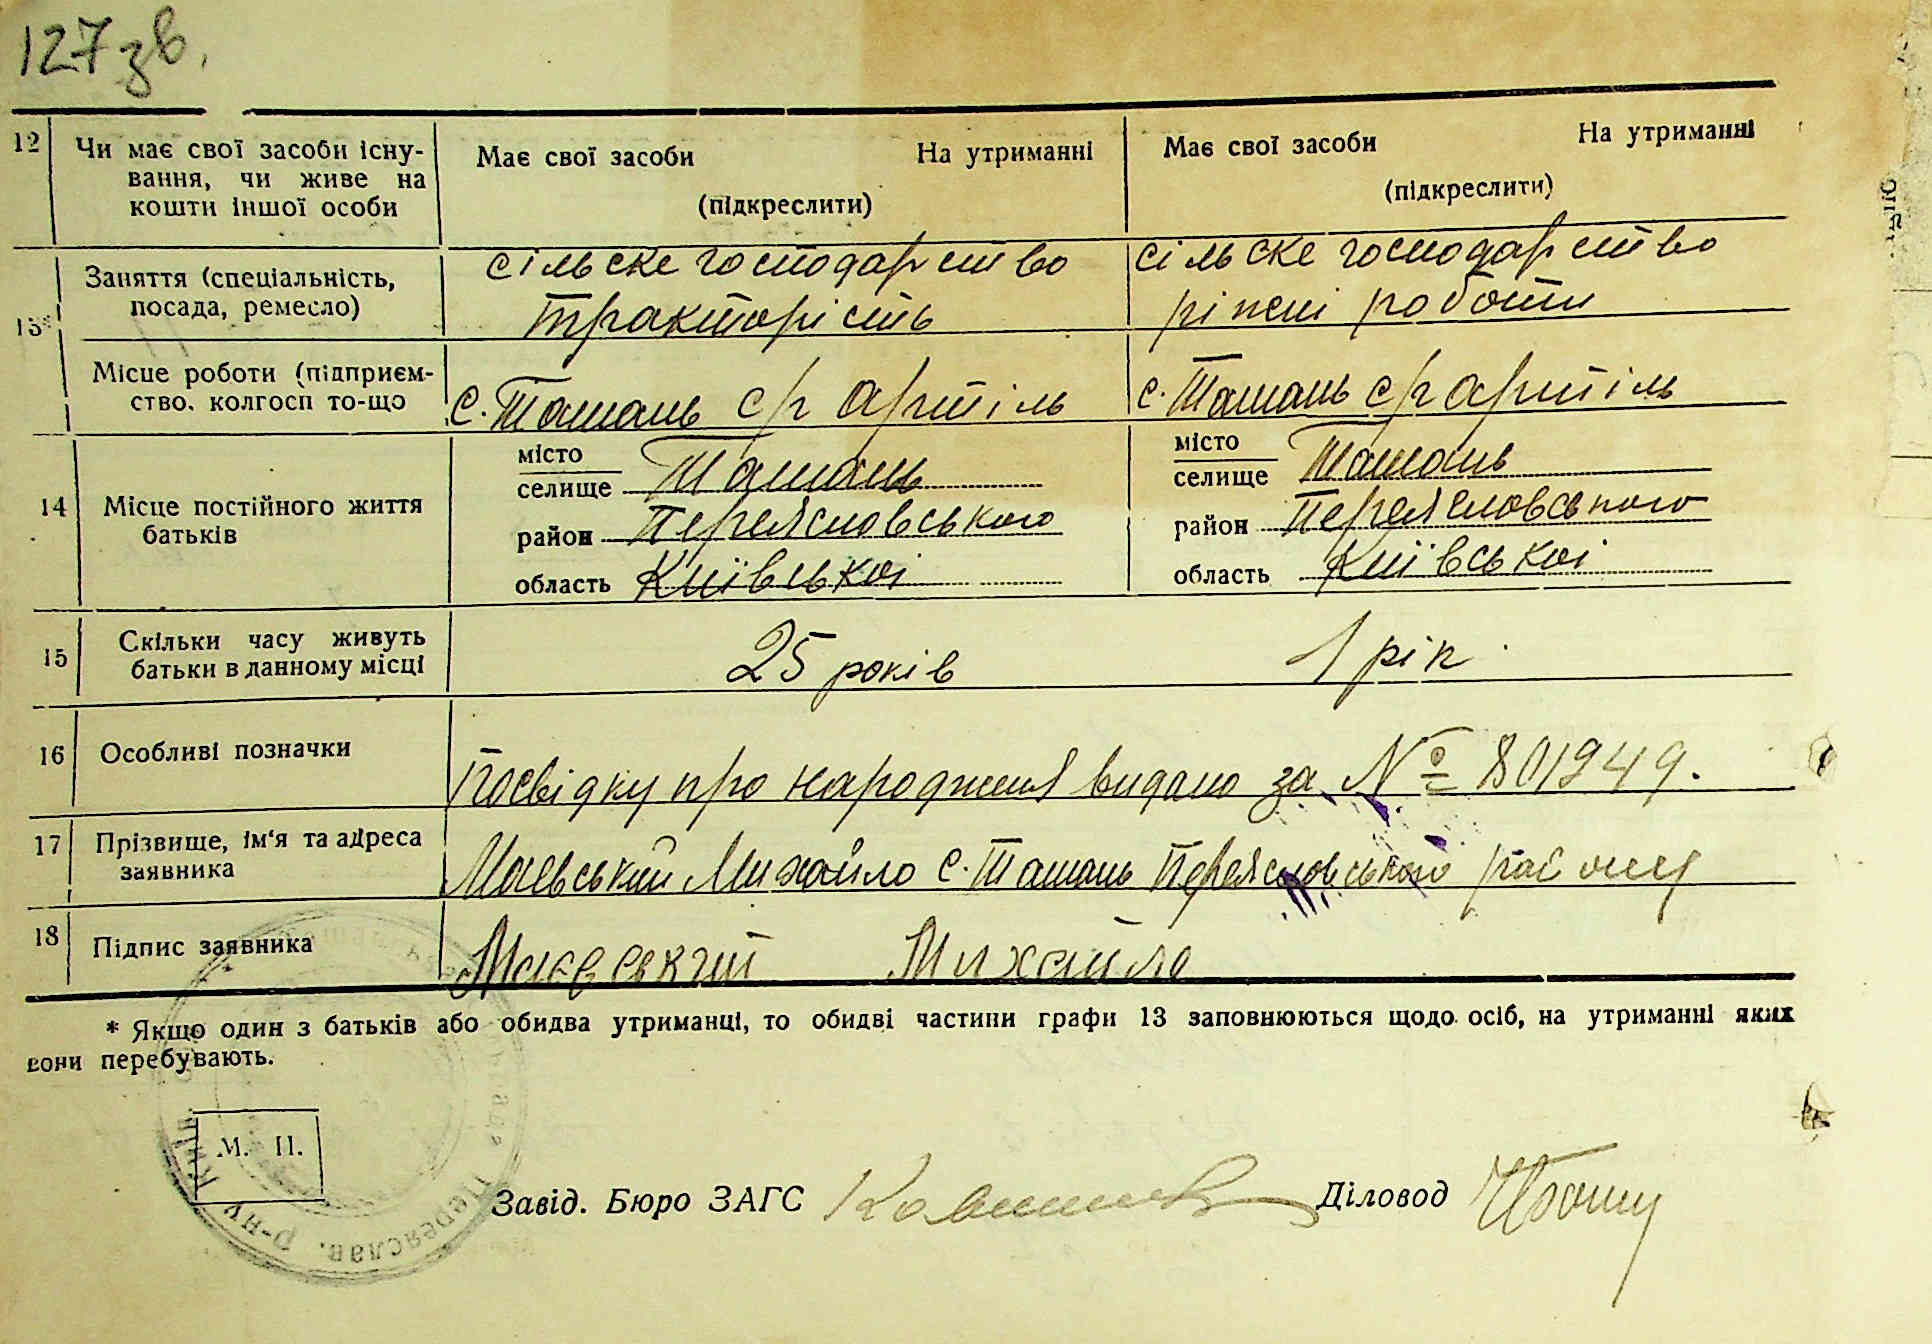 127 зв.
12 Чи має свої засоби існу-
вання, чи живе на
кошти іншої особи
Має свої засоби На утриманні
(підкреслити)
Має свої засоби На утриманні
(підкреслити)
13*
Заняття (спеціальність,
посада, ремесло)
сільське господарство
тракторість
сільске господарство
ріжні роботи
Місце роботи (підприєм-
ство, колгосп то-що
с. Ташань с/г артіль
с. Ташань с/г артіль
14 Місце постійного життя
батьків
місто
селище Ташань
район Переясловського
область Київської
місто
селище Ташань
район Переясловського
область Київської
15 Скільки часу живуть
батьки в данному місці
25 років
1 рік
16 Особливі позначки
Посвідку про народження видано за № 801949.
17 Прізвище, ім'я та адреса
заявника
Маєвський Михайло с. Ташань Переясловського району
18 Підпис заявника
Маєвський Михайло
* Якщо один з батьків або обидва утриманці, то обидві частини графи 13 заповнюються щодо осіб, на утриманні яких
вони перебувають.
М. П.
Переяслав. р-ну
Завід. Бюро ЗАГС
Діловод